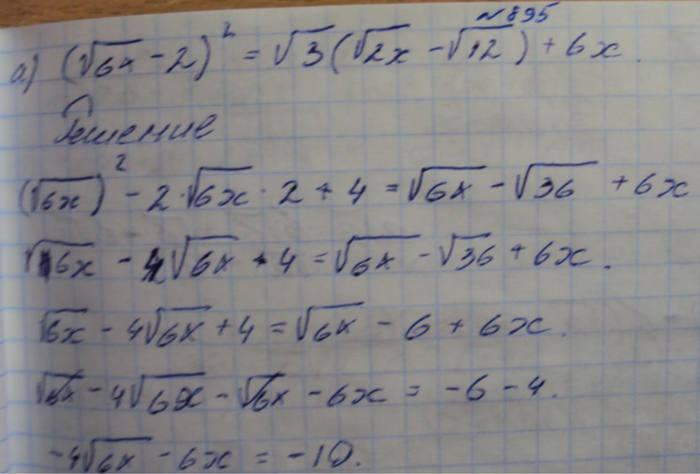 №895
а) (√6x - 2)² = √3(√2x - √12) + 6x.
Решение
(√6x)² - 2·√6x · 2 + 4 = √6x - √36 + 6x
√6x - 4√6x + 4 = √6x - √36 + 6x.
√6x - 4√6x + 4 = √6x - 6 + 6x.
√6x - 4√6x - √6x - 6x = -6 - 4.
-4√6x - 6x = -10.